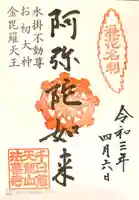 浪花名刹
水掛不動尊
お初大神
金毘羅天王
阿弥陀如来
令和三年
四月六日
法善寺